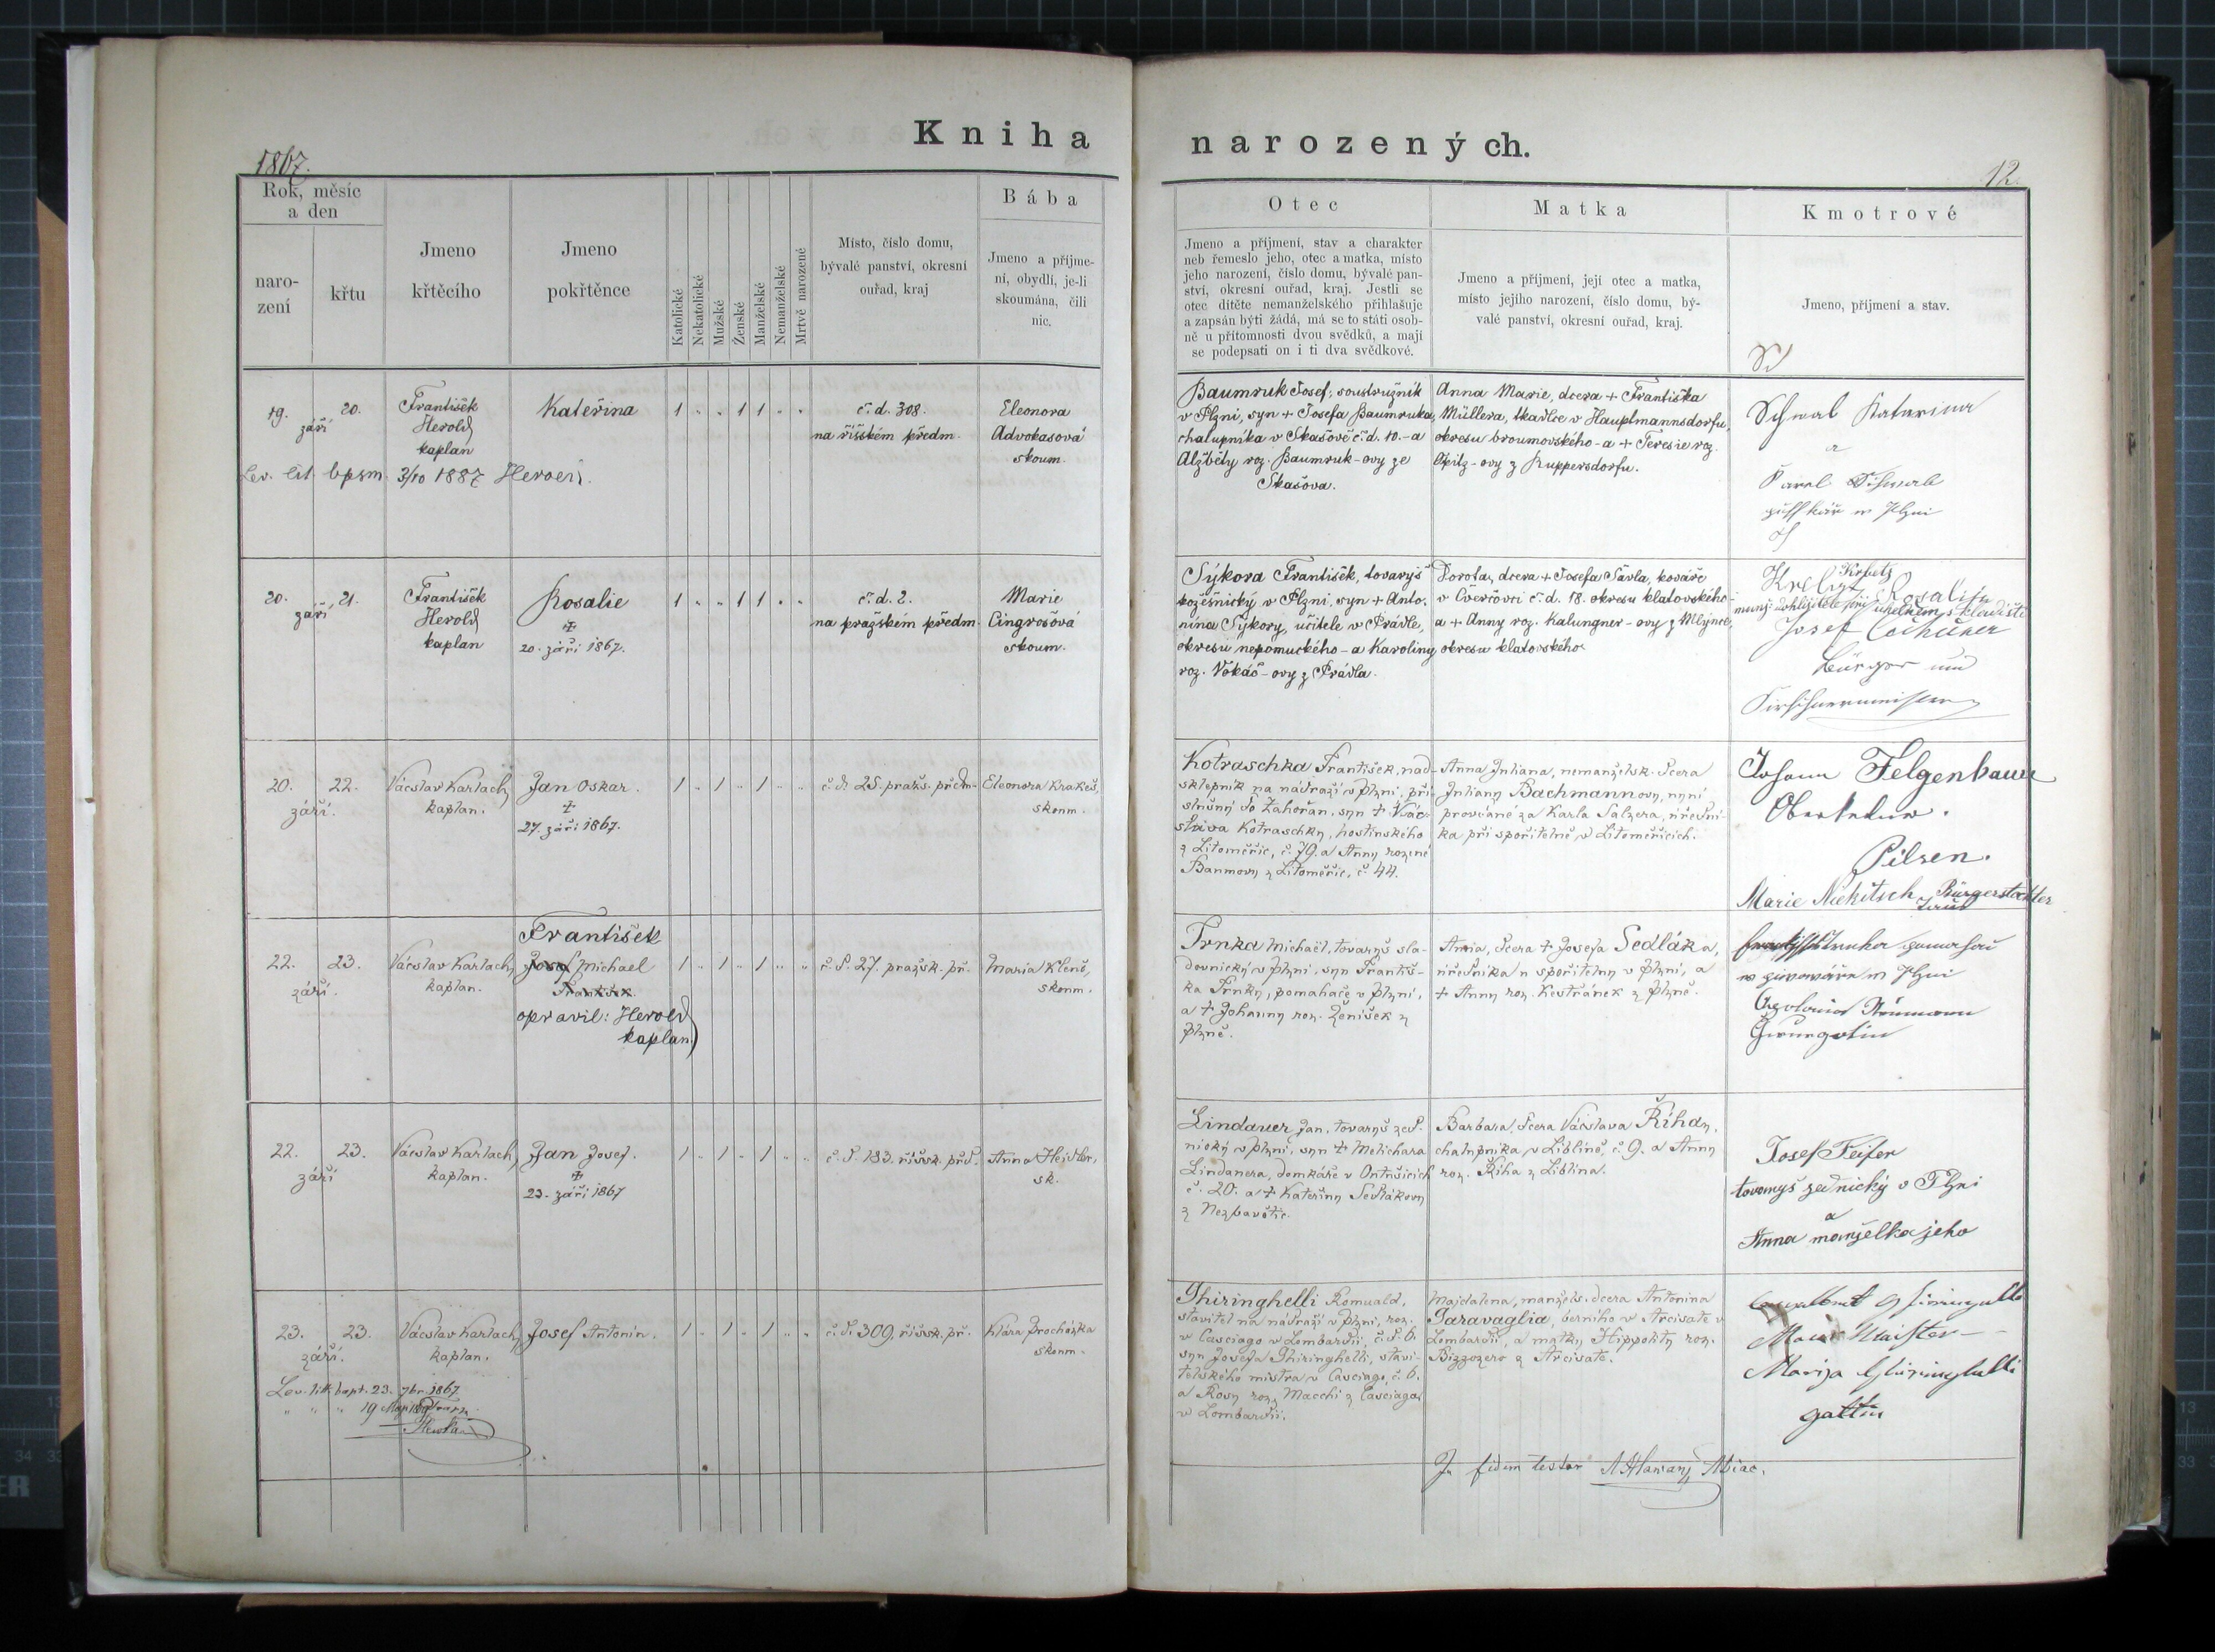 Kniha
narozených.
1867.
12.
Rok, měsíc
a den
naro-
zení
křtu
Jmeno
křtěcího
Jmeno
pokřtěnce
Katolické
Nekatolické
Mužské
Ženské
Manželské
Nemanželské
Mrtvě narozené
Místo, číslo domu,
bývalé panství, okresní
ouřad, kraj
Bába
Jmeno a příjme-
ní, obydlí, je-li
skoumána, čili
nic.
Otec
Jmeno a příjmení, stav a charakter
neb řemeslo jeho, otec a matka, místo
jeho narození, číslo domu, bývalé pan-
ství, okresní ouřad, kraj. Jestli se
otec dítěte nemanželského přihlašuje
a zapsán býti žádá, má se to státi osob-
ně u přítomnosti dvou svědků, a mají
se podepsati on i ti dva svědkové.
Matka
Jmeno a příjmení, její otec a matka,
místo jejího narození, číslo domu, bý-
valé panství, okresní ouřad, kraj.
Kmotrové
Jmeno, příjmení a stav.
19. 20.
září
František
Herold
kaplan
Kateřina
1 " " 1 1 " "
č. d. 308.
na říšském předm.
Eleonora
Advokasová
skoum.
3/10 1887
Baumruk Josef, soustružník
v Plzni, syn + Josefa Baumruka,
chalupníka v Skašově č. d. 10. - a
Alžběty roz. Baumruk-ovy ze
Skašova.
Anna Marie, dcera + Františka
Müllera, tkadlce v Hauptmannsdorfu,
okresu broumovského - a + Teresie roz.
Opitz-ovy z Ruppersdorfu.
Schwab Katarina
a
Karel Schwab
20. 21.
září
František
Herold
kaplan
Rosalie
+
20. září 1867.
1 " " 1 1 " "
č. d. 2.
na pražském předm.
Marie
Cingrošová
skoum.
Sýkora František, tovaryš
kožešnický v Plzni, syn + Anto-
nína Sýkory, učitele v Prádle,
okresu nepomuckého - a Karoliny
roz. Vokáč-ovy z Prádla.
Dorota, dcera + Josefa Sávla, kováře
v Ovčřovci č. d. 18. okresu klatovského -
a + Anny roz. Kalungner-ovy z Mlýnce,
okresu klatovského.
Krbetz
Rosalia
Josef
Bürger und
Kirschnermeister
20. 22.
září.
Vácslav Karlach,
kaplan.
Jan Oskar.
+
27. září 1867.
1 " 1 " 1 " "
č. d. 25. pražs. předm.
Eleonora Krakeš,
skoum.
Kotraschka František, nad-
sklepník na nádraží v Plzni, pří-
slušný do Zahořan, syn + Vác-
slava Kotraschky, hostinského
z Litoměřic, č. 79. a Anny rozené
Baumovy z Litoměřic, č. 44.
Anna Juliana, nemanželsk. dcera
Juliany Bachmannovy, nyní
provdané za Karla Salzera, úřední-
ka při spořitelně v Litoměřicích.
Johann Felgenhauer
Oberkellner.
Pilsen.
Marie Nickitsch Bürgerstochter
22. 23.
září.
Vácslav Karlach,
kaplan.
František
Josef Michael
František
opravil: Herold
kaplan
1 " 1 " 1 " "
č. d. 27. pražsk. př.
Maria Kleně,
skoum.
Trnka Michael, tovaryš sla-
dovnický v Plzni, syn Františ-
ka Trnky, pomahače v Plzni,
a + Johanny roz. Ženíšek z
Plzně.
Anna, dcera + Josefa Sedláka,
úředníka u spořitelny v Plzni, a
+ Anny roz. Kestřánek z Plzně.
22. 23.
září
Vácslav Karlach,
kaplan.
Jan Josef.
+
23. září 1867
1 " 1 " 1 " "
č. d. 183. říšsk. před.
Anna Heidler,
sk.
Lindauer Jan, tovaryš zed-
nický v Plzni, syn + Melichara
Lindauera, domkáře v Ontušicích
č. 20. a + Kateřiny Sedlákovy
z Nezbavětic.
Barbara, dcera Vácslava Říhy,
chalupníka v Liblíně, č. 9. a Anny
roz. Říha z Liblína.
Josef Feifer
tovaryš zednický v Plzni
a
Anna manželka jeho
23. 23.
září.
Vácslav Karlach,
kaplan.
Josef Antonín.
1 " 1 " 1 " "
č. d. 309. říšsk. př.
Klára Procházka
skoum.
Lev. litt. bapt. 23. 7br. 1867
Ghiringhelli Romuald,
stavitel na nádraží v Plzni, roz.
v Casciago v Lombardii, č. d. 6.
syn Josefa Ghiringhelli, stavi-
telského mistra v Casciago, č. 6.
a Rosy roz. Macchi z Casciaga
v Lombardii.
Majdalena, manžels. dcera Antonína
Garavaglia, berního v Arcisate v
Lombardii, a matky Hippolity roz.
Bizzozero z Arcisate.
Marija Ghiringhelli
gattin
In fidem testor